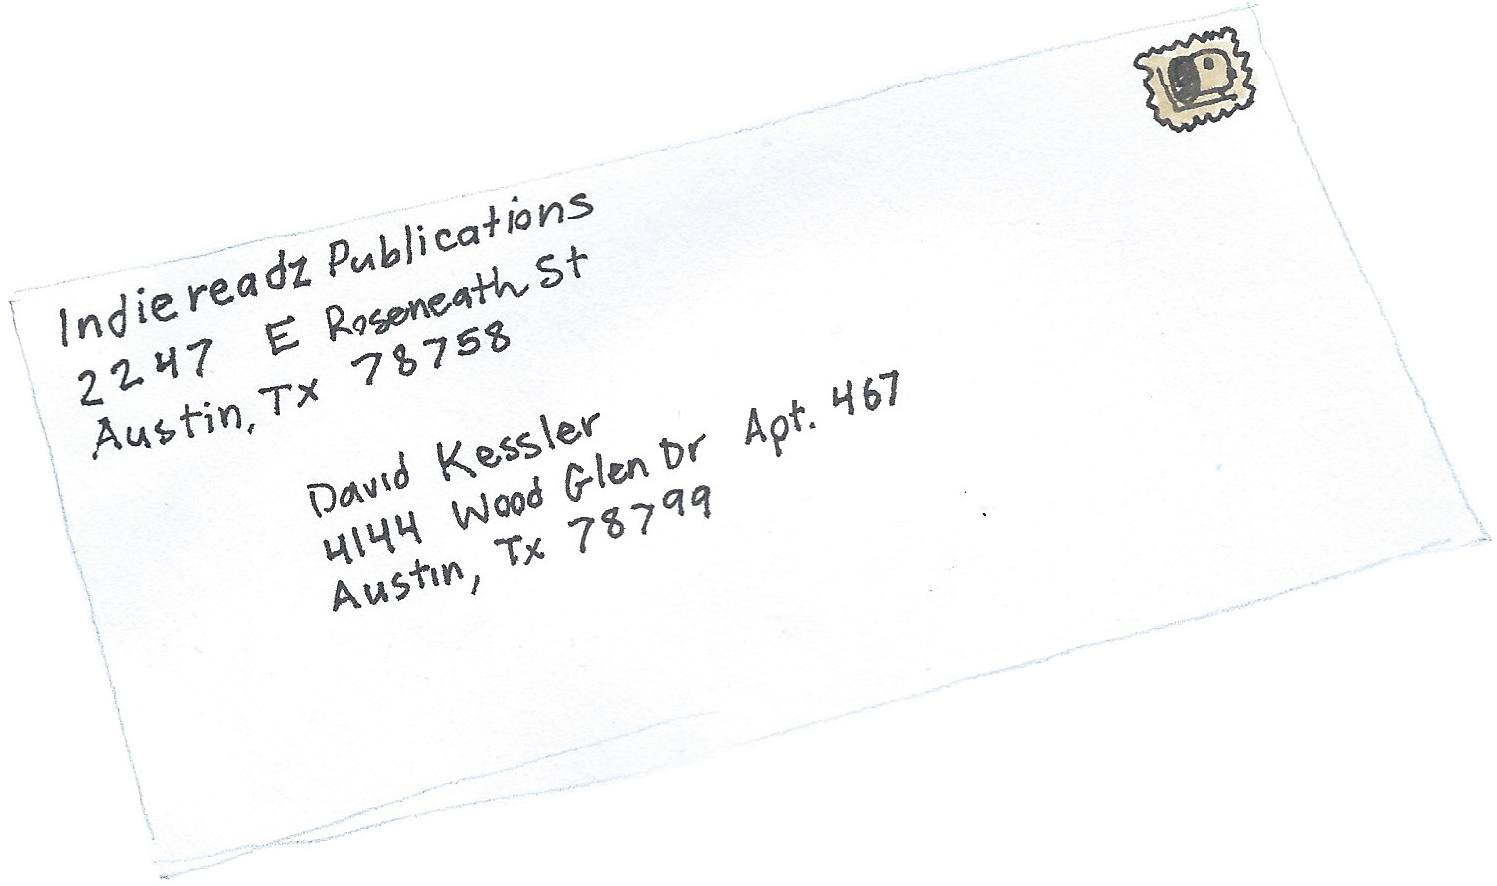 Indiereadz Publications
2247 E Roseneath St
Austin, Tx 78758
David Kessler
4144 Wood Glen Dr Apt. 467
Austin, Tx 78799